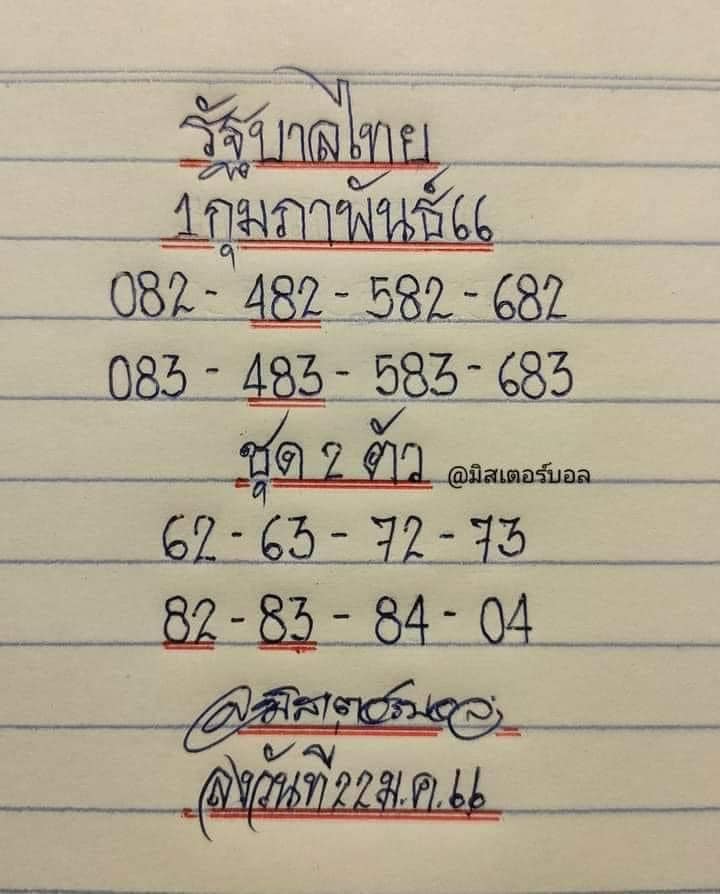 รัฐบาลไทย
1กุมภาพันธ์66
082 - 482 - 582 - 682
083 - 483 - 583 - 683
ชุด 2 ตัว @มิสเตอร์บอล
62 - 63 - 72 - 73
82 - 83 - 84 - 04
@มิสเตอร์บอล
ลงวันที่22ม.ค.66